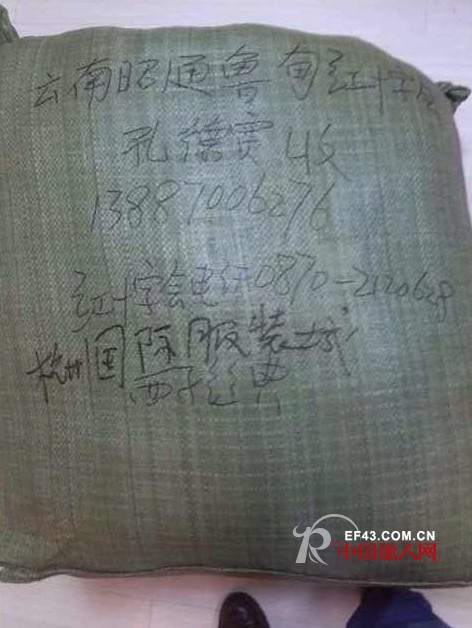 云南昭通鲁甸红十字会
孔德贾收
13887006276
红十字会电话0870-2120628
杭州国际服装城
EF43.COM.CN
中国丽人网